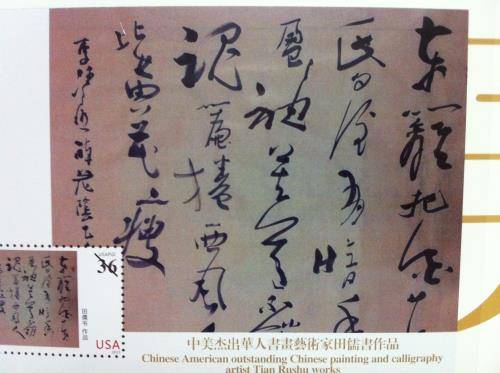 东籬把酒
昏后有暗香
盈袖莫道不
魂簾捲西風
比黄花瘦
李清照词醉花陰
36
USA
作品
中美杰出華人書畫藝術家田儒書作品
Chinese American outstanding Chinese painting and calligraphy
artist Tian Rushu works